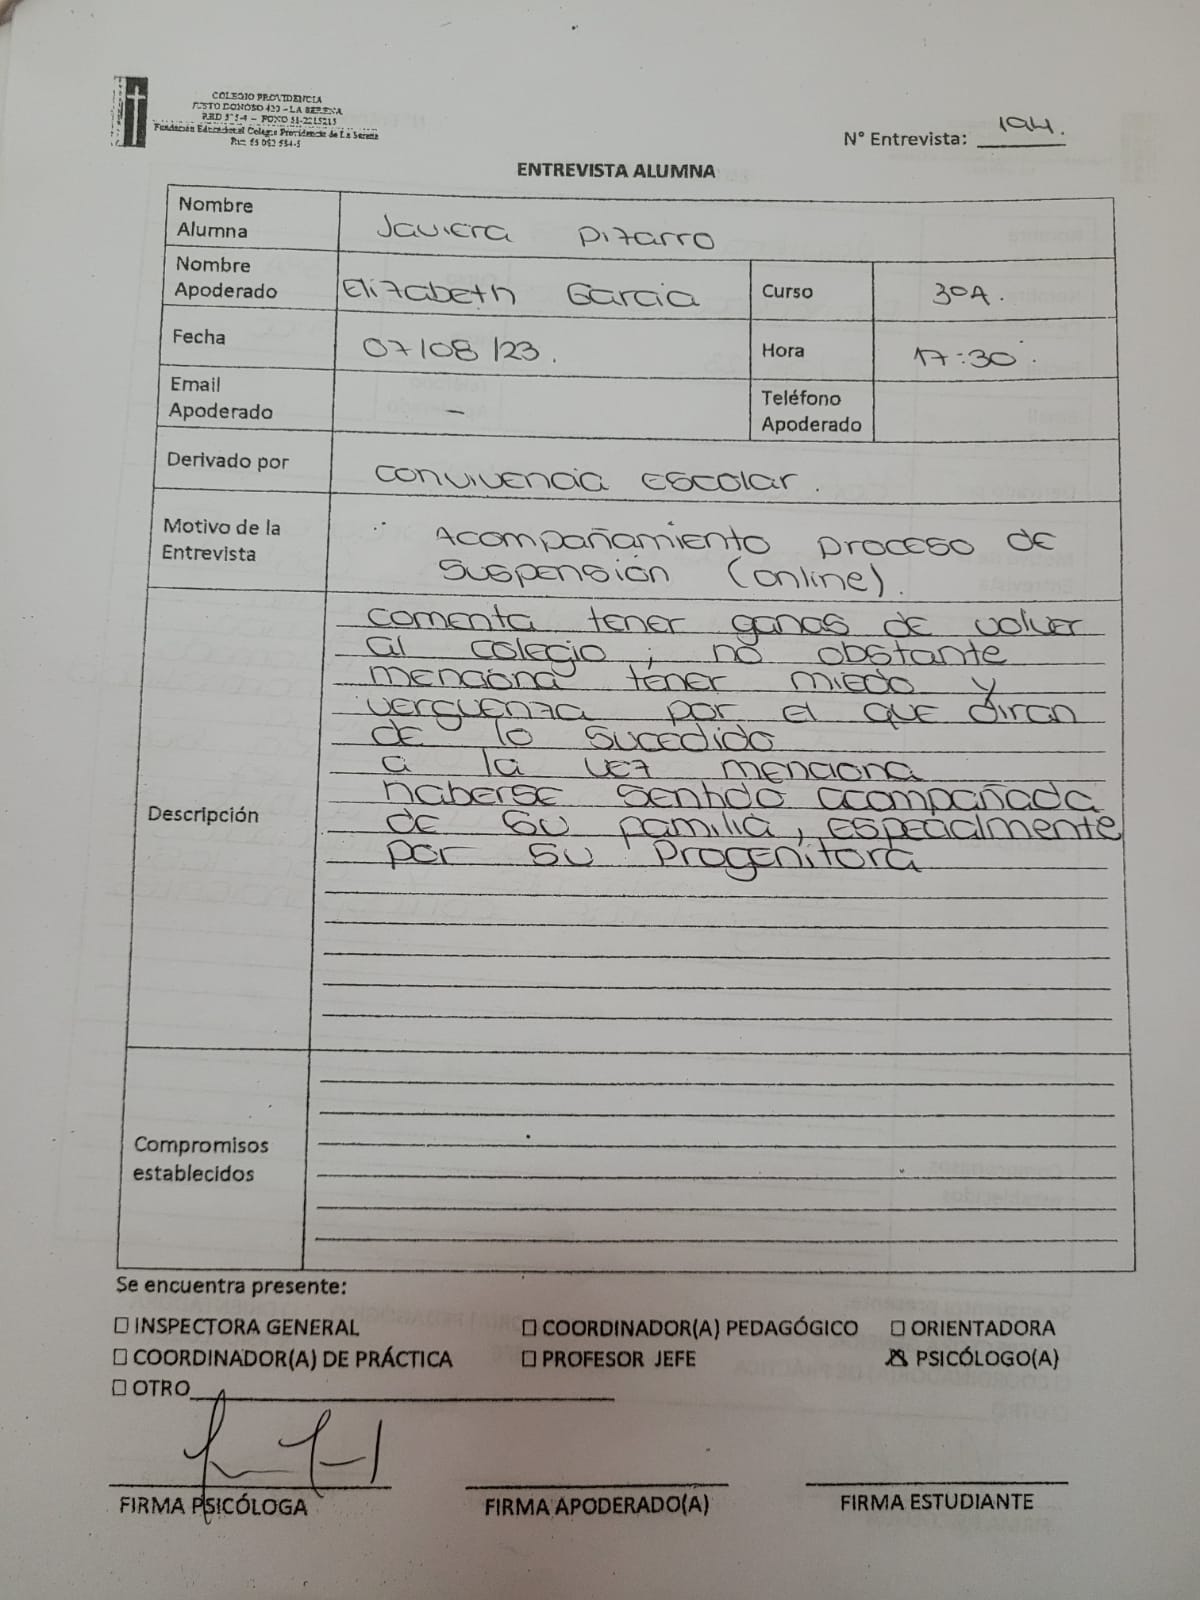 COLEGIO PROVIDENCIA
JUSTO DONOSO 420 - LA SERENA
Fundación Educacional Colegio Providencia de La Serena
N° Entrevista: 194.
ENTREVISTA ALUMNA
Nombre Alumna Javiera Pizarro
Nombre Apoderado Elizabeth Garcia Curso 3°A.
Fecha 07/08/23. Hora 17:30.
Email Apoderado - Teléfono Apoderado
Derivado por convivencia escolar.
Motivo de la Entrevista
Acompañamiento proceso de
suspensión (online).
Descripción
comenta tener ganas de volver
al colegio, no obstante
menciona tener miedo y
verguenza por el que diran
de lo sucedido
a la vez menciona
haberse sentido acompañada
de su familia, especialmente
por su progenitora
Compromisos establecidos
Se encuentra presente:
☐ INSPECTORA GENERAL ☐ COORDINADOR(A) PEDAGÓGICO ☐ ORIENTADORA
☐ COORDINADOR(A) DE PRÁCTICA ☐ PROFESOR JEFE ☒ PSICÓLOGO(A)
☐ OTRO
FIRMA PSICÓLOGA FIRMA APODERADO(A) FIRMA ESTUDIANTE